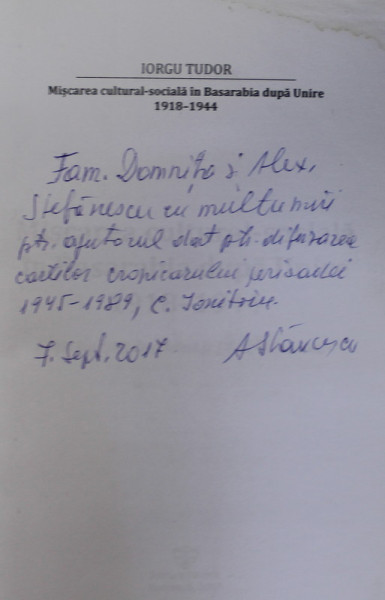 IORGU TUDOR
Mișcarea cultural-socială în Basarabia după Unire
1918-1944
Fam. Domnița și Alex.
Ștefănescu cu mulțumiri
ptr. ajutorul dat ptr. difuzarea
cărților cronicarului
1945-1989, C. Ionițoiu.
7. Sept. 2017 AStănescu